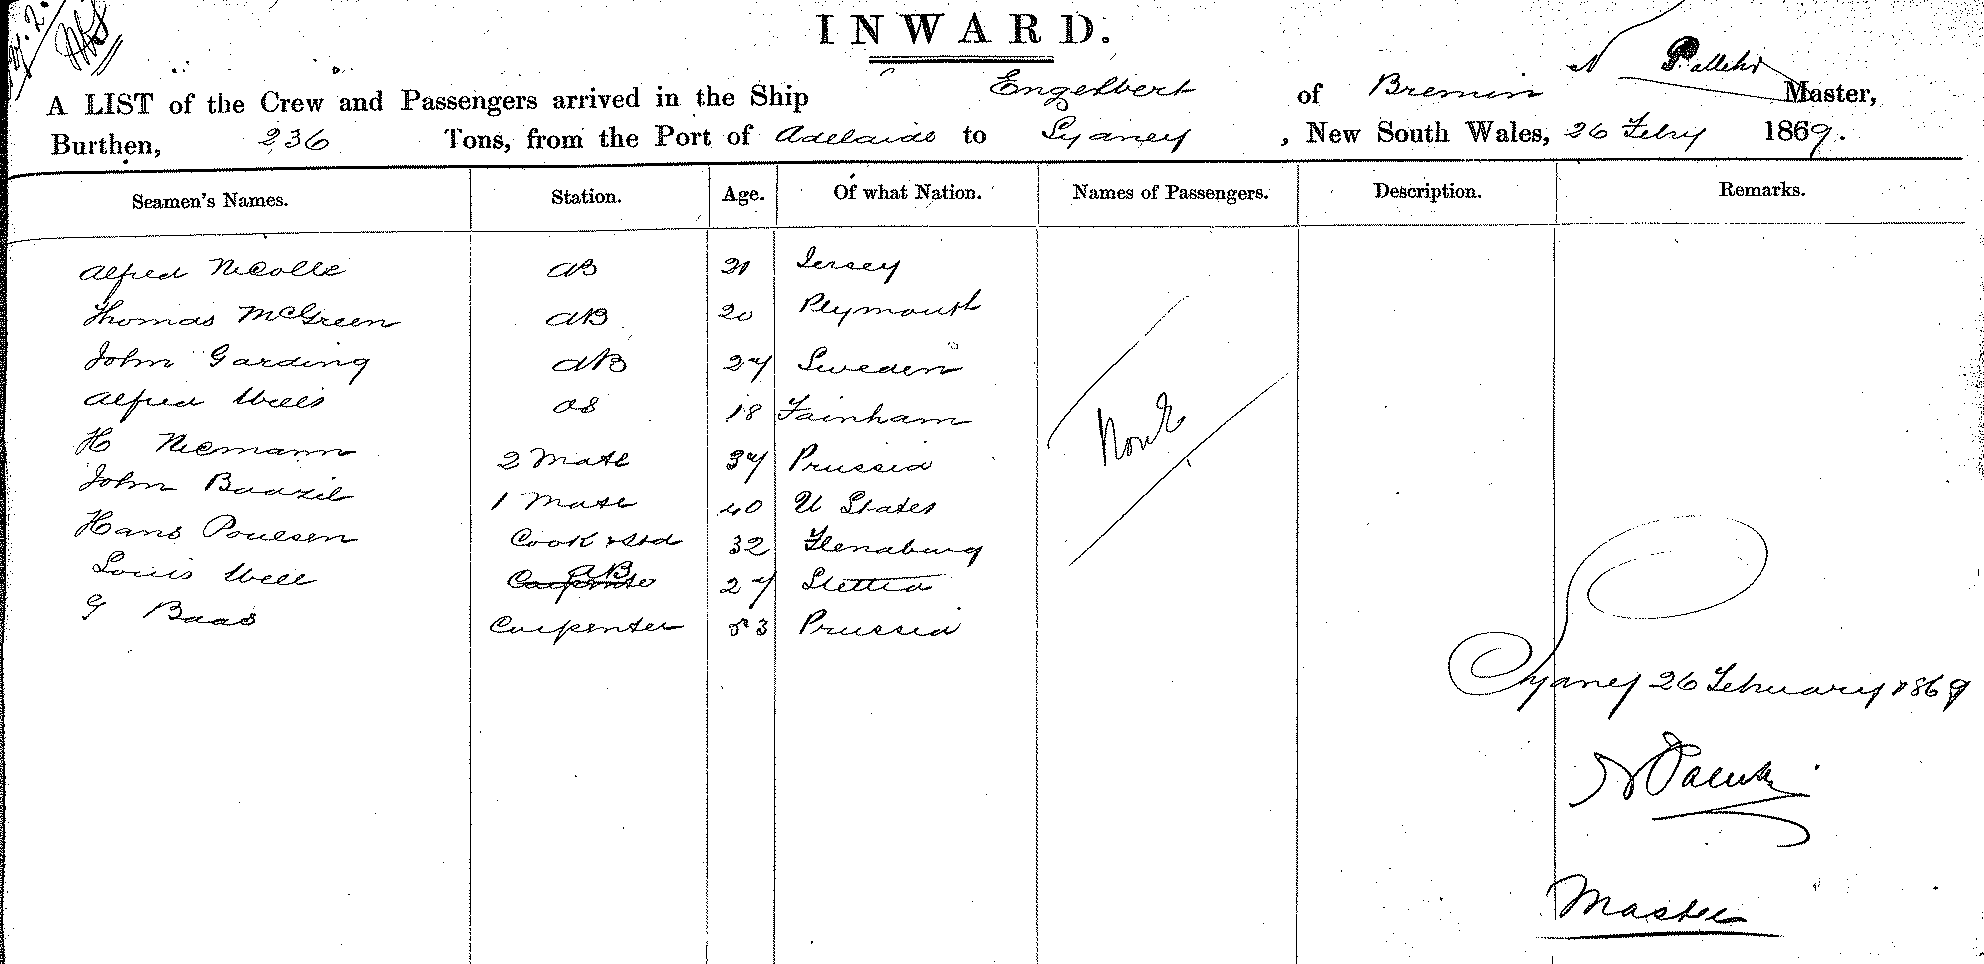 INWARD.
A LIST of the Crew and Passengers arrived in the Ship Engelbert of Bremin Master,
Burthen, 236 Tons, from the Port of Adelaide to Sydney, New South Wales, 26 Febry 1869.
Seamen's Names. Station. Age. Of what Nation. Names of Passengers. Description. Remarks.
Alfred Nicolle AB Jersey
Thomas McGreen AB 20 Plymouth
John Garding AB 27 Sweden
Alfred Wells OS 18
H Niemann 2 Mate 37 Prussia
None
John Baazil 1 Mate 40 U States
Hans Poulsen Cook & Std 32 Flensburg
Louis Well AB 27 Stettin
G Baas Carpenter 53 Prussia
Sydney 26 February 1869
Master